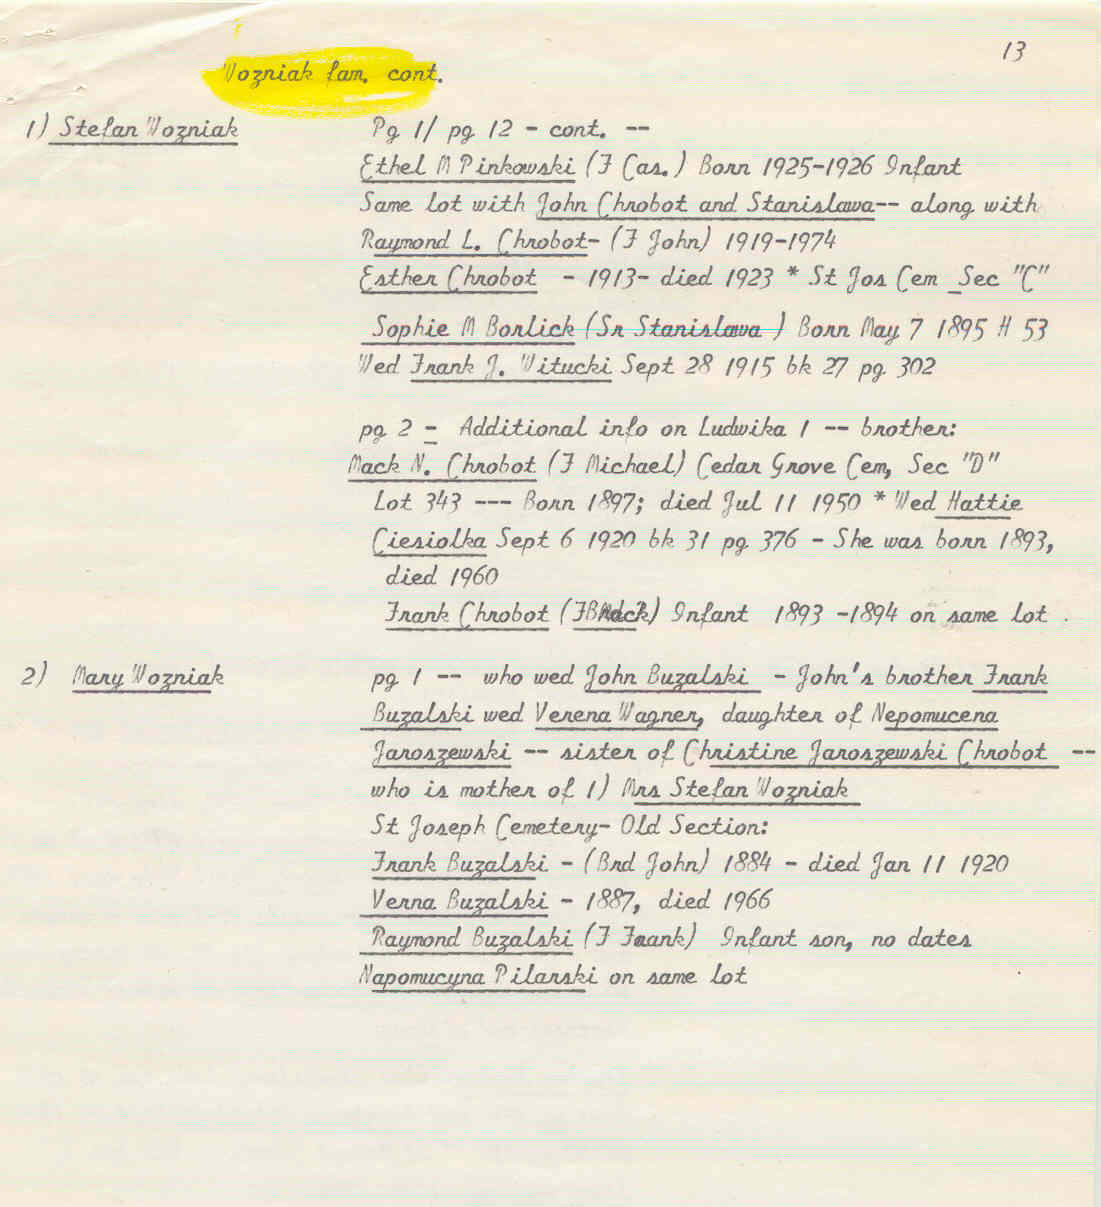 13
Wozniak fam. cont.
1) Stefan Wozniak Pg 1/ pg 12 - cont. --
Ethel M Pinkowski (F Cas.) Born 1925-1926 Infant
Same lot with John Chrobot and Stanislawa-- along with
Raymond L. Chrobot- (F John) 1919-1974
Esther Chrobot - 1913- died 1923 * St Jos Cem _Sec "C"
Sophie M Borlick (Sr Stanislawa ) Born May 7 1895 H 53
Wed Frank J. Witucki Sept 28 1915 bk 27 pg 302
pg 2 - Additional info on Ludwika 1 -- brother:
Mack N. Chrobot (F Michael) Cedar Grove Cem, Sec "D"
Lot 343 --- Born 1897; died Jul 11 1950 * Wed Hattie
Ciesiolka Sept 6 1920 bk 31 pg 376 - She was born 1893,
died 1960
Frank Chrobot ( Mack) Infant 1893 -1894 on same lot .
2) Mary Wozniak pg 1 -- who wed John Buzalski - John's brother Frank
Buzalski wed Verena Wagner, daughter of Nepomucena
Jaroszewski -- sister of Christine Jaroszewski Chrobot --
who is mother of 1) Mrs Stefan Wozniak
St Joseph Cemetery- Old Section:
Frank Buzalski - (Brd John) 1884 - died Jan 11 1920
Verna Buzalski - 1887, died 1966
Raymond Buzalski (F Frank) Infant son, no dates
Napomucyna Pilarski on same lot